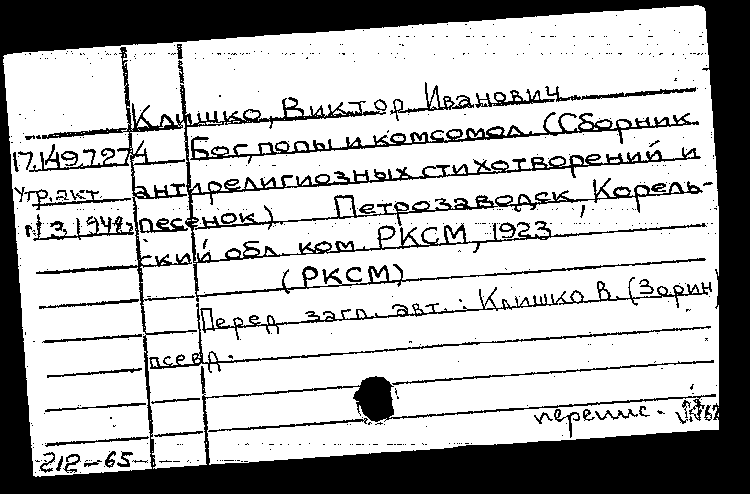 Клишко, Виктор Иванович
17.149.7.274 Бог, попы и комсомол. (Сборник
Утр. акт. антирелигиозных стихотворений и
N 3 1948г песенок) Петрозаводск, Корель-
ский обл. ком. РКСМ, 1923
(РКСМ)
Перед загл. авт.: Клишко В. (Зорин)
псевд.
перепис.
212-65